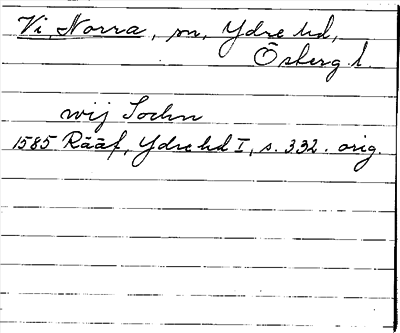 Vi, Norra, sn, Ydre hd,
Östergl.
wij Sochn
1585 Rääf, Ydre hd I, s. 332. orig.